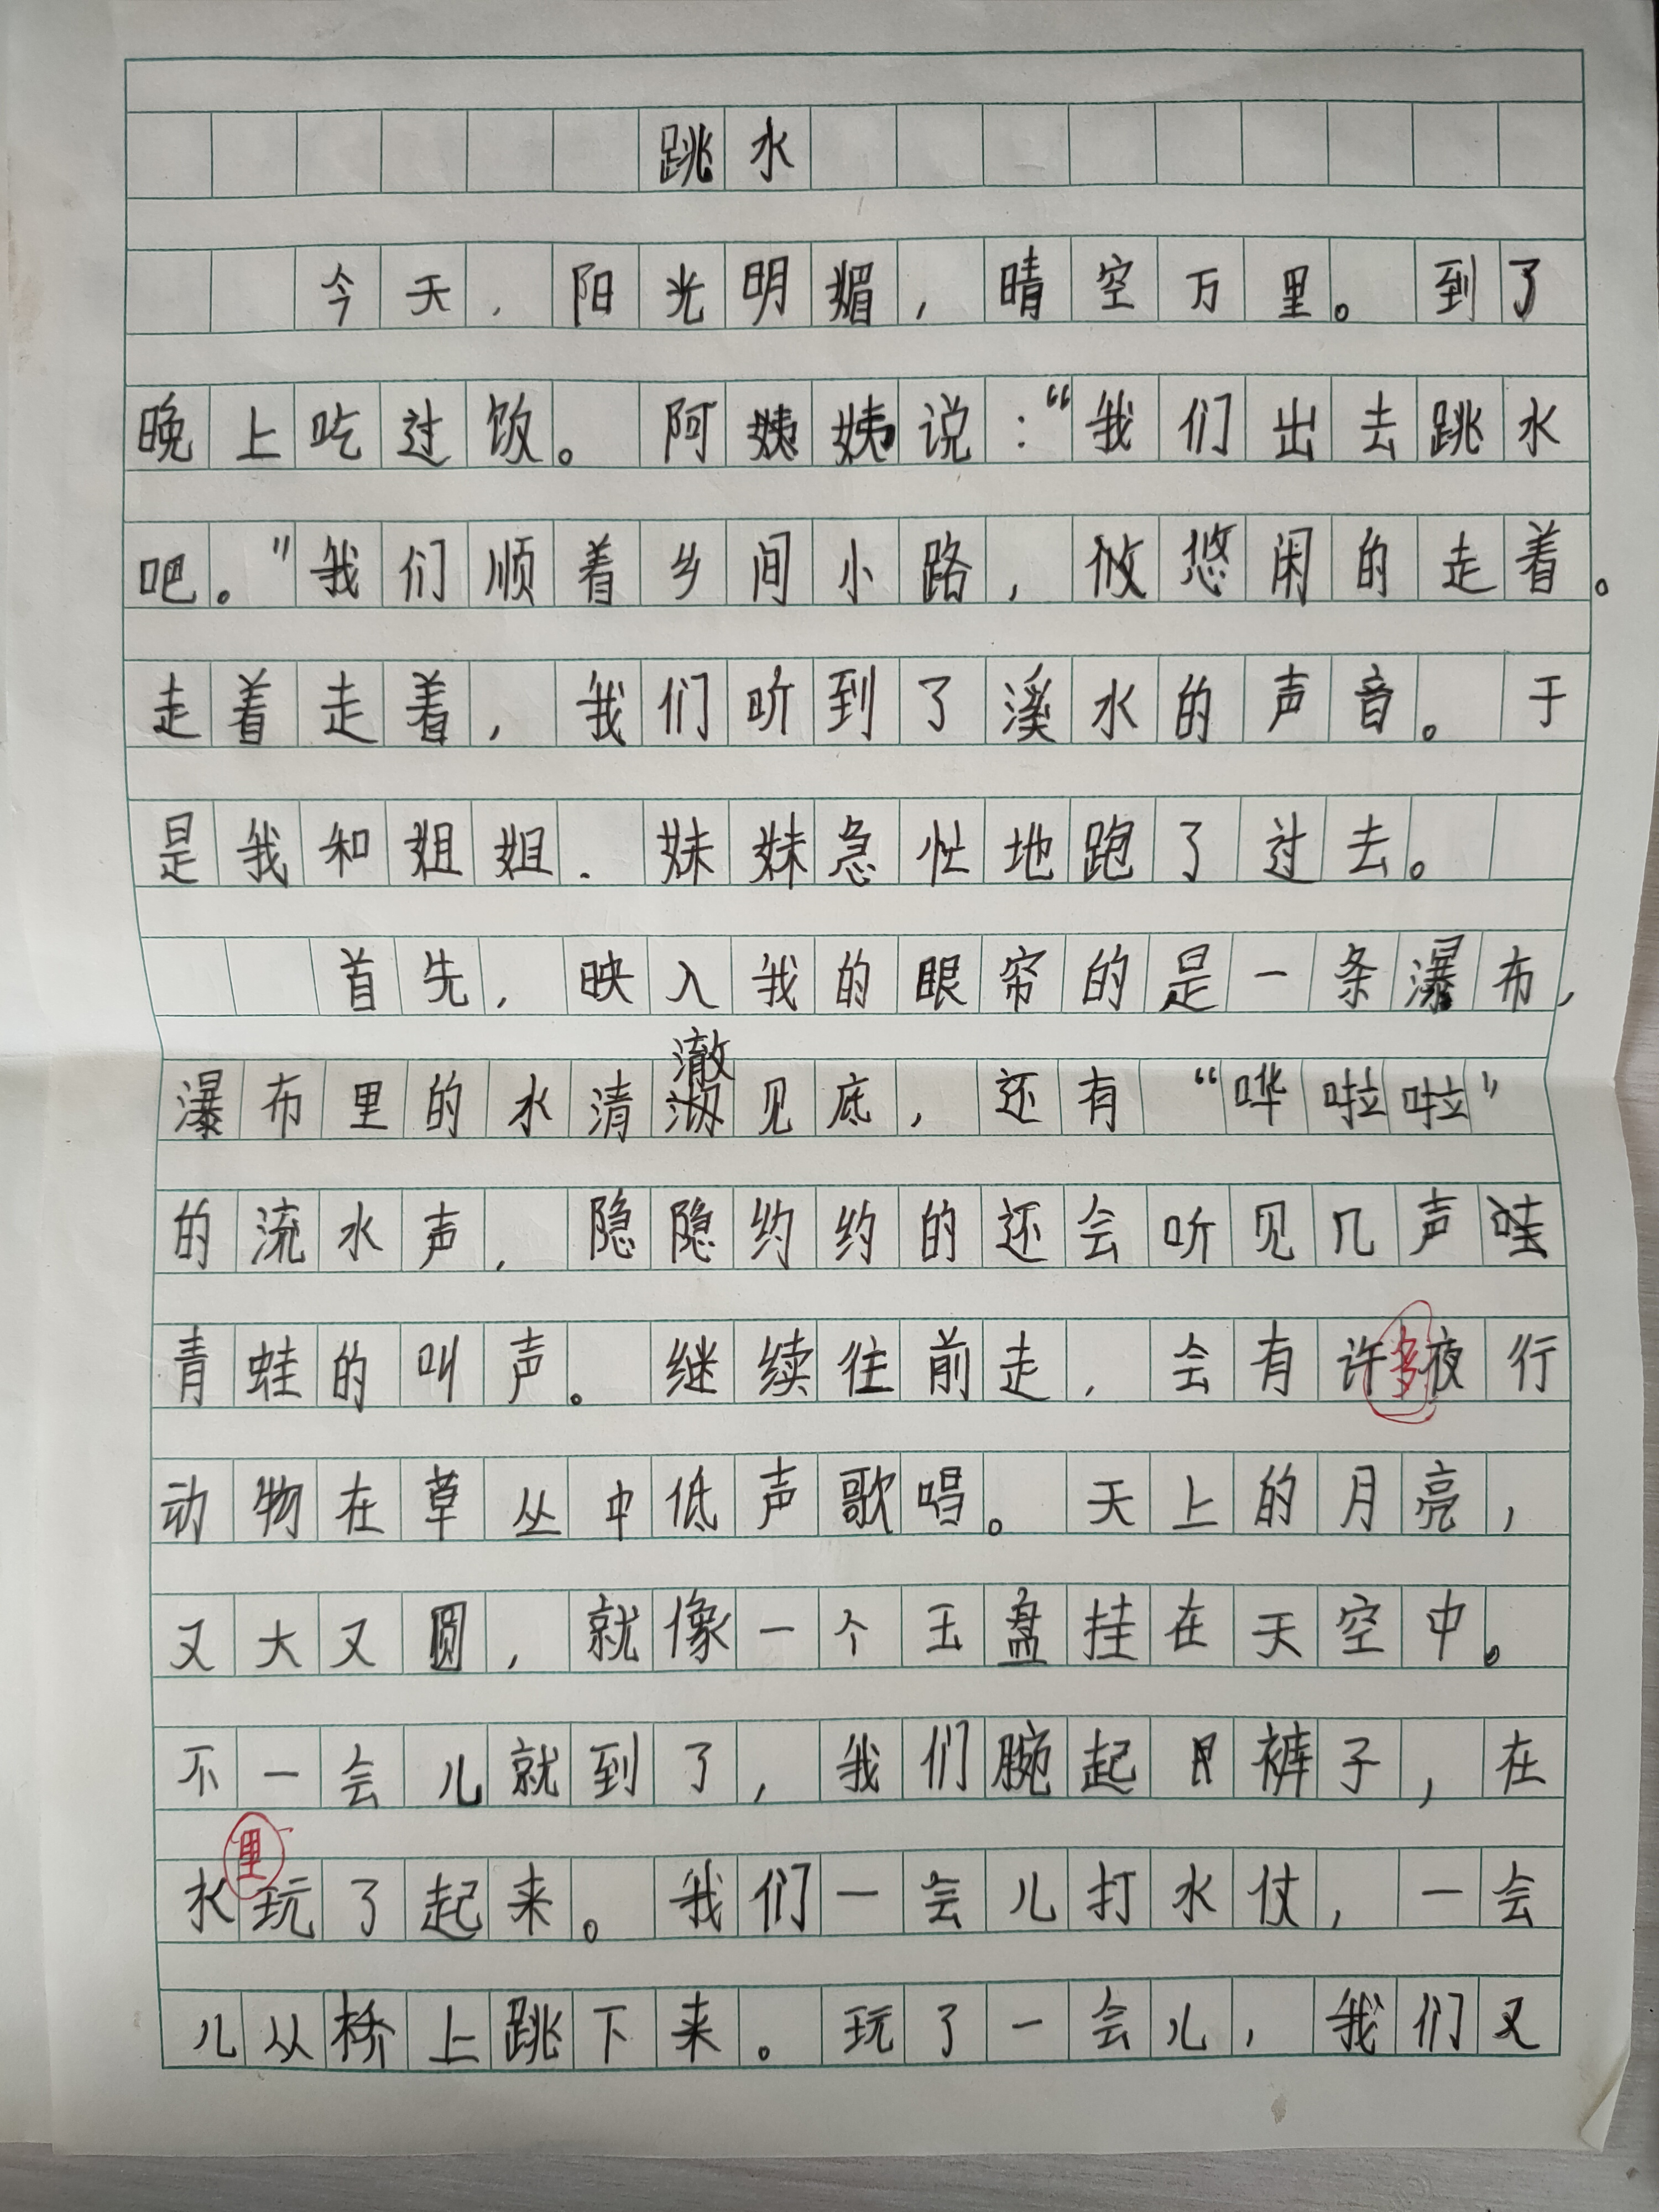 跳水
今天，阳光明媚，晴空万里。到了
晚上吃过饭。阿姨姨说：“我们出去跳水
吧。”我们顺着乡间小路，攸悠闲的走着。
走着走着，我们听到了溪水的声音。于
是我和姐姐．妹妹急忙地跑了过去。
首先，映入我的眼帘的是一条瀑布，
瀑布里的水清澈见底，还有“哗啦啦”
的流水声，隐隐约约的还会听见几声哇
青蛙的叫声。继续往前走，会有许多夜行
动物在草丛中低声歌唱。天上的月亮，
又大又圆，就像一个玉盘挂在天空中。
不一会儿就到了，我们腕起裤子，在
水里玩了起来。我们一会儿打水仗，一会
儿从桥上跳下来。玩了一会儿，我们又